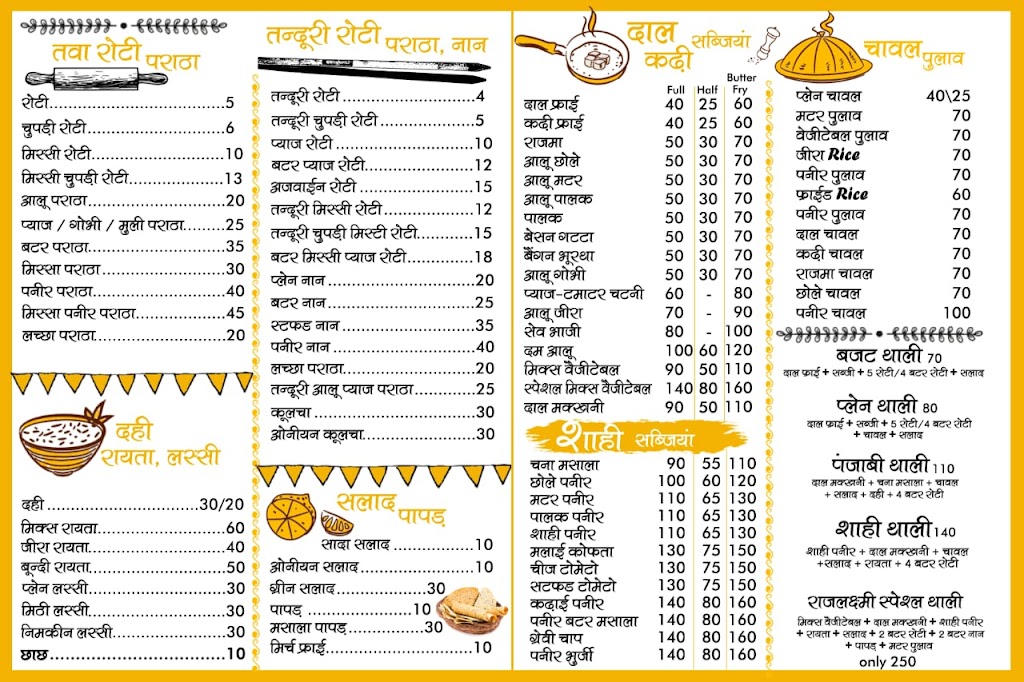 तवा रोटी पराठा
रोटी 5
चुपड़ी रोटी 6
मिस्सी रोटी 10
मिस्सी चुपड़ी रोटी 13
आलू पराठा 20
प्याज / गोभी / मुली पराठा 25
बटर पराठा 35
मिस्सा पराठा 30
पनीर पराठा 40
मिस्सा पनीर पराठा 45
लच्छा पराठा 20
दही
रायता, लस्सी
दही 30/20
मिक्स रायता 60
जीरा रायता 40
बून्दी रायता 50
प्लेन लस्सी 30
मिठी लस्सी 30
निमकीन लस्सी 30
छाछ 10
तन्दूरी रोटी पराठा, नान
तन्दूरी रोटी 4
तन्दूरी चुपड़ी रोटी 5
प्याज रोटी 10
बटर प्याज रोटी 12
अजवाईन रोटी 15
तन्दूरी मिस्सी रोटी 12
तन्दूरी चुपड़ी मिस्टी रोटी 15
बटर मिस्सी प्याज रोटी 18
प्लेन नान 20
बटर नान 25
स्टफड नान 35
पनीर नान 40
लच्छा पराठा 20
तन्दूरी आलू प्याज पराठा 25
कूलचा 30
ओनीयन कूलचा 30
सलाद
पापड़
सादा सलाद 10
ओनीयन सलाद 10
ग्रीन सलाद 30
पापड़ 10
मसाला पापड़ 30
मिर्च फ्राई 10
दाल
कढ़ी सब्जियां
Full Half Butter Fry
दाल फ्राई 40 25 60
कढी फ्राई 40 25 60
राजमा 50 30 70
आलू छोले 50 30 70
आलू मटर 50 30 70
आलू पालक 50 30 70
पालक 50 30 70
बेसन गटटा 50 30 70
बैंगन भूरथा 50 30 70
आलू गोभी 50 30 70
प्याज-टमाटर चटनी 60 - 80
आलू जीरा 70 - 90
सेव भाजी 80 - 100
दम आलू 100 60 120
मिक्स वैजीटेबल 90 50 110
स्पेशल मिक्स वैजीटेबल 140 80 160
दाल मक्खनी 90 50 110
शाही सब्जियां
चना मसाला 90 55 110
छोले पनीर 100 60 120
मटर पनीर 110 65 130
पालक पनीर 110 65 130
शाही पनीर 110 65 130
मलाई कोफता 130 75 150
चीज टोमेटो 130 75 150
सटफड टोमेटो 130 75 150
कढाई पनीर 140 80 160
पनीर बटर मसाला 140 80 160
ग्रेवी चाप 140 80 160
पनीर भुर्जी 140 80 160
चावल पुलाव
प्लेन चावल 40\25
मटर पुलाव 70
वेजीटेबल पुलाव 70
जीरा Rice 70
पनीर पुलाव 70
फ्राईड Rice 60
पनीर पुलाव 70
दाल चावल 70
कढी चावल 70
राजमा चावल 70
छोले चावल 70
पनीर चावल 100
बजट थाली 70
दाल फ्राई + सब्जी + 5 रोटी/4 बटर रोटी + सलाद
प्लेन थाली 80
दाल फ्राई + सब्जी + 5 रोटी/4 बटर रोटी
+ चावल + सलाद
पंजाबी थाली 110
दाल मक्खनी + चना मसाला + चावल
+ सलाद + दही + 4 बटर रोटी
शाही थाली 140
शाही पनीर + दाल मक्खनी + चावल
+सलाद + रायता + 4 बटर रोटी
राजलक्ष्मी स्पेश्ल थाली
मिक्स वैजीटेबल + दाल मक्खनी + शाही पनीर
+ रायता + सलाद + 2 बटर रोटी + 2 बटर नान
+ पापड़ + मटर पुलाव
only 250